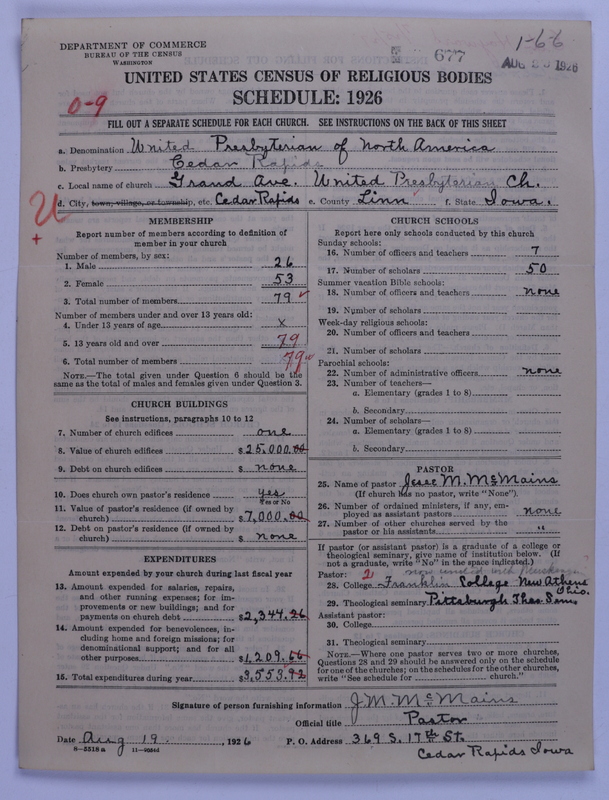 DEPARTMENT OF COMMERCE
BUREAU OF THE CENSUS
WASHINGTON
677
1-6-6
AUG 1926
UNITED STATES CENSUS OF RELIGIOUS BODIES
SCHEDULE: 1926
0-9
FILL OUT A SEPARATE SCHEDULE FOR EACH CHURCH. SEE INSTRUCTIONS ON THE BACK OF THIS SHEET
a. Denomination United Presbyterian of North America
b. Presbytery Cedar Rapids
c. Local name of church Grand Ave. United Presbyterian Ch.
d. City, town, village, or township, etc. Cedar Rapids e. County Linn f. State Iowa.
U
+
MEMBERSHIP
Report number of members according to definition of
member in your church
Number of members, by sex:
1. Male 26
2. Female 53
3. Total number of members 79
Number of members under and over 13 years old:
4. Under 13 years of age x
5. 13 years old and over 79
6. Total number of members 79
NOTE.—The total given under Question 6 should be the
same as the total of males and females given under Question 3.
CHURCH BUILDINGS
See instructions, paragraphs 10 to 12
7. Number of church edifices one
8. Value of church edifices $25,000.00
9. Debt on church edifices $ none
10. Does church own pastor's residence yes
Yes or No
11. Value of pastor's residence (if owned by
church) $7,000.00
12. Debt on pastor's residence (if owned by
church) $ none
EXPENDITURES
Amount expended by your church during last fiscal year
13. Amount expended for salaries, repairs,
and other running expenses; for im-
provements or new buildings; and for
payments on church debt $2,344.26
14. Amount expended for benevolences, in-
cluding home and foreign missions; for
denominational support; and for all
other purposes $1,209.66
15. Total expenditures during year $3,553.92
CHURCH SCHOOLS
Report here only schools conducted by this church
Sunday schools:
16. Number of officers and teachers 7
17. Number of scholars 50
Summer vacation Bible schools:
18. Number of officers and teachers none
19. Number of scholars
Week-day religious schools:
20. Number of officers and teachers
21. Number of scholars
Parochial schools:
22. Number of administrative officers none
23. Number of teachers—
a. Elementary (grades 1 to 8)
b. Secondary
24. Number of scholars—
a. Elementary (grades 1 to 8)
b. Secondary
PASTOR
25. Name of pastor Jesse M. McMains
(If church has no pastor, write "None").
26. Number of ordained ministers, if any, em-
ployed as assistant pastors none
27. Number of other churches served by the
pastor or his assistants "
If pastor (or assistant pastor) is a graduate of a college or
theological seminary, give name of institution below. (If
not a graduate, write "No" in the space indicated.)
Pastor: 2 now united with Muskingum?
28. College Franklin College New Athens
Ohio.
29. Theological seminary Pittsburgh Theo. Sem.
Assistant pastor:
30. College
31. Theological seminary
NOTE.—Where one pastor serves two or more churches,
Questions 28 and 29 should be answered only on the schedule
for one of the churches; on the schedules for the other churches,
write "See schedule for church."
Signature of person furnishing information J. M. McMains
Official title Pastor
Date Aug 19, 1926 P. O. Address 369 S. 17th St.
8—5518a
Cedar Rapids Iowa